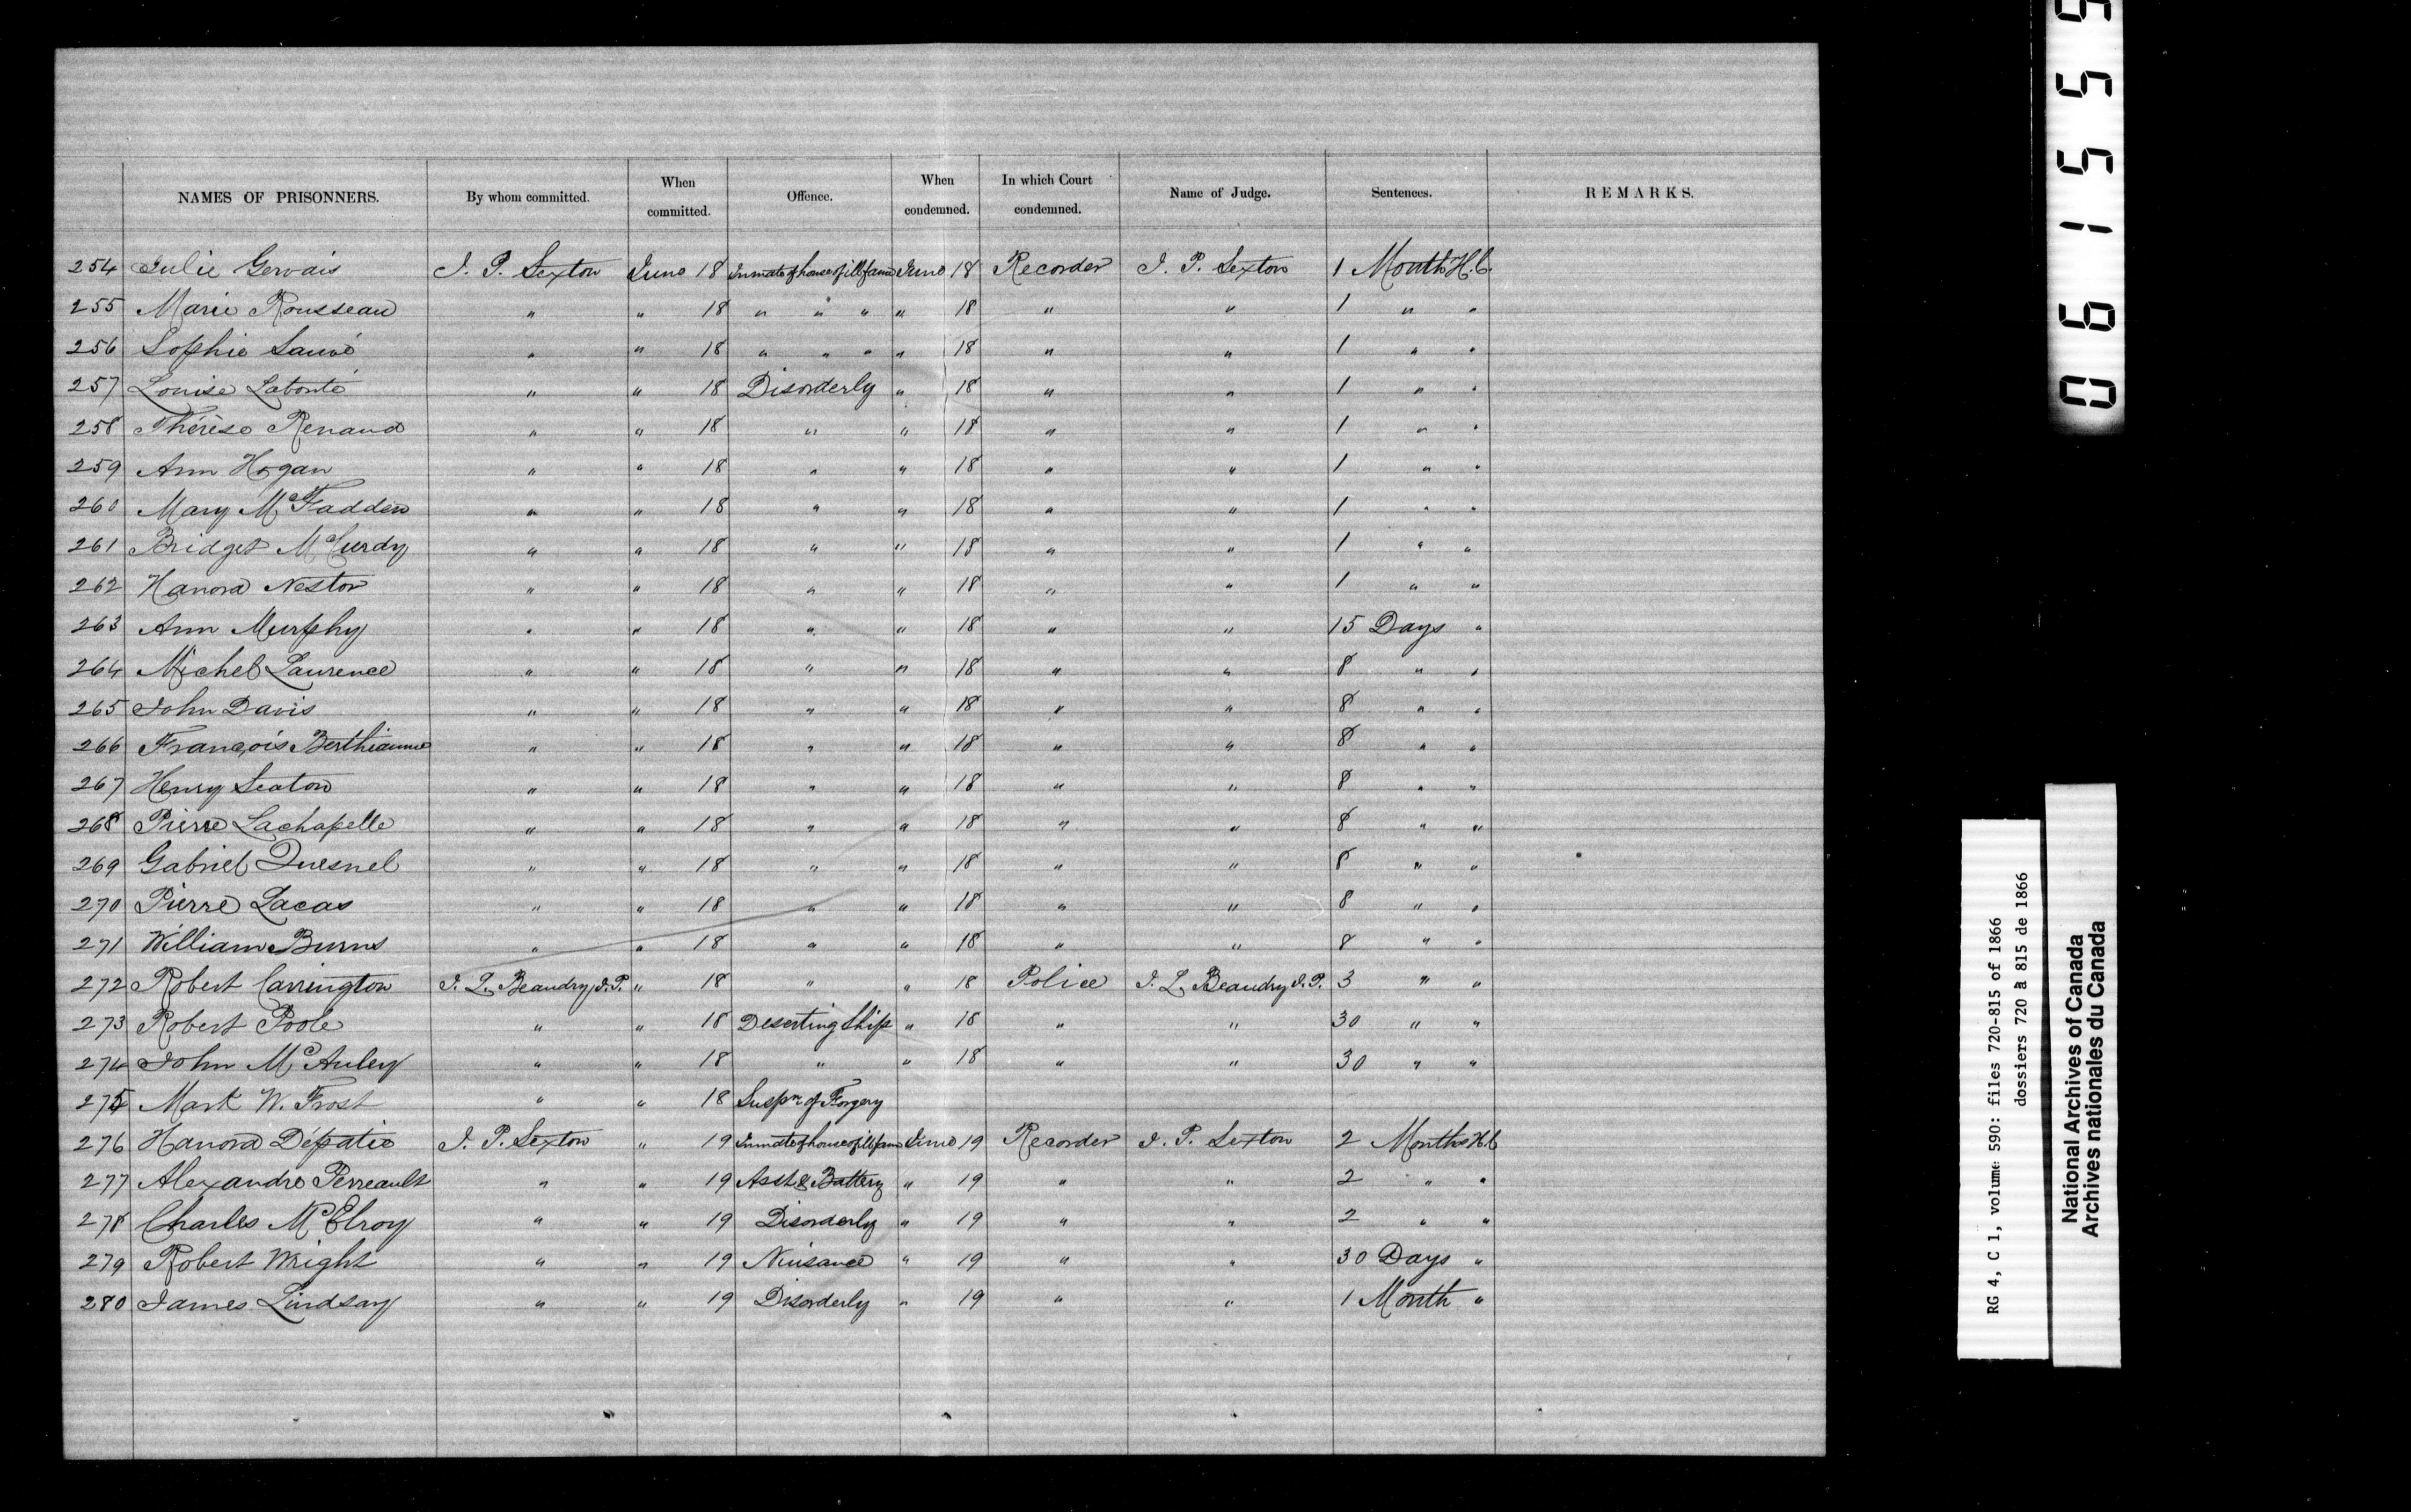 NAMES OF PRISONNERS. By whom committed. When committed. Offence. When condemned. In which Court condemned. Name of Judge. Sentences. REMARKS.
254 Julie Gervais J. P. Sexton June 18 Inmate of house of ill fame June 18 Recorder J. P. Sexton 1 Month H.L.
255 Marie Rousseau " " 18 " " " " 18 " " 1 " "
256 Sophie Sauvé " " 18 " " " " 18 " " 1 " "
257 Louise Latonté " " 18 Disorderly " 18 " " 1 " "
258 Thérèse Renaud " " 18 " " 18 " " 1 " "
259 Ann Hogan " " 18 " " 18 " " 1 " "
260 Mary McFadden " " 18 " " 18 " " 1 " "
261 Bridget McCurdy " " 18 " " 18 " " 1 " "
262 Hanora Nestor " " 18 " " 18 " " 1 " "
263 Ann Murphy " " 18 " " 18 " " 15 Days "
264 Michel Laurence " " 18 " " 18 " " 8 " "
265 John Davis " " 18 " " 18 " " 8 " "
266 François Berthiaume " " 18 " " 18 " " 8 " "
267 Henry Seaton " " 18 " " 18 " " 8 " "
268 Pierre Lachapelle " " 18 " " 18 " " 8 " "
269 Gabriel Quesnel " " 18 " " 18 " " 8 " "
270 Pierre Lacas " " 18 " " 18 " " 8 " "
271 William Burns " " 18 " " 18 " " 8 " "
272 Robert Carrington J. L. Beaudry, J.P. " 18 " " 18 Police J. L. Beaudry J.P. 3 " "
273 Robert Poole " " 18 Deserting Ship " 18 " " 30 " "
274 John McAuley " " 18 " " 18 " " 30 " "
275 Mark W. Frost " " 18 Suspn of Forgery
276 Hanora Dépatie J. P. Sexton " 19 Inmate of house of ill fame June 19 Recorder J. P. Sexton 2 Months H.L.
277 Alexandre Perreault " " 19 Asst & Battery " 19 " " 2 " "
278 Charles McElroy " " 19 Disorderly " 19 " " 2 " "
279 Robert Wright " " 19 Nuisance " 19 " " 30 Days "
280 James Lindsay " " 19 Disorderly " 19 " " 1 Month "
061555
RG 4, C 1, volume 590: files 720-815 of 1866
dossiers 720 à 815 de 1866
National Archives of Canada
Archives nationales du Canada